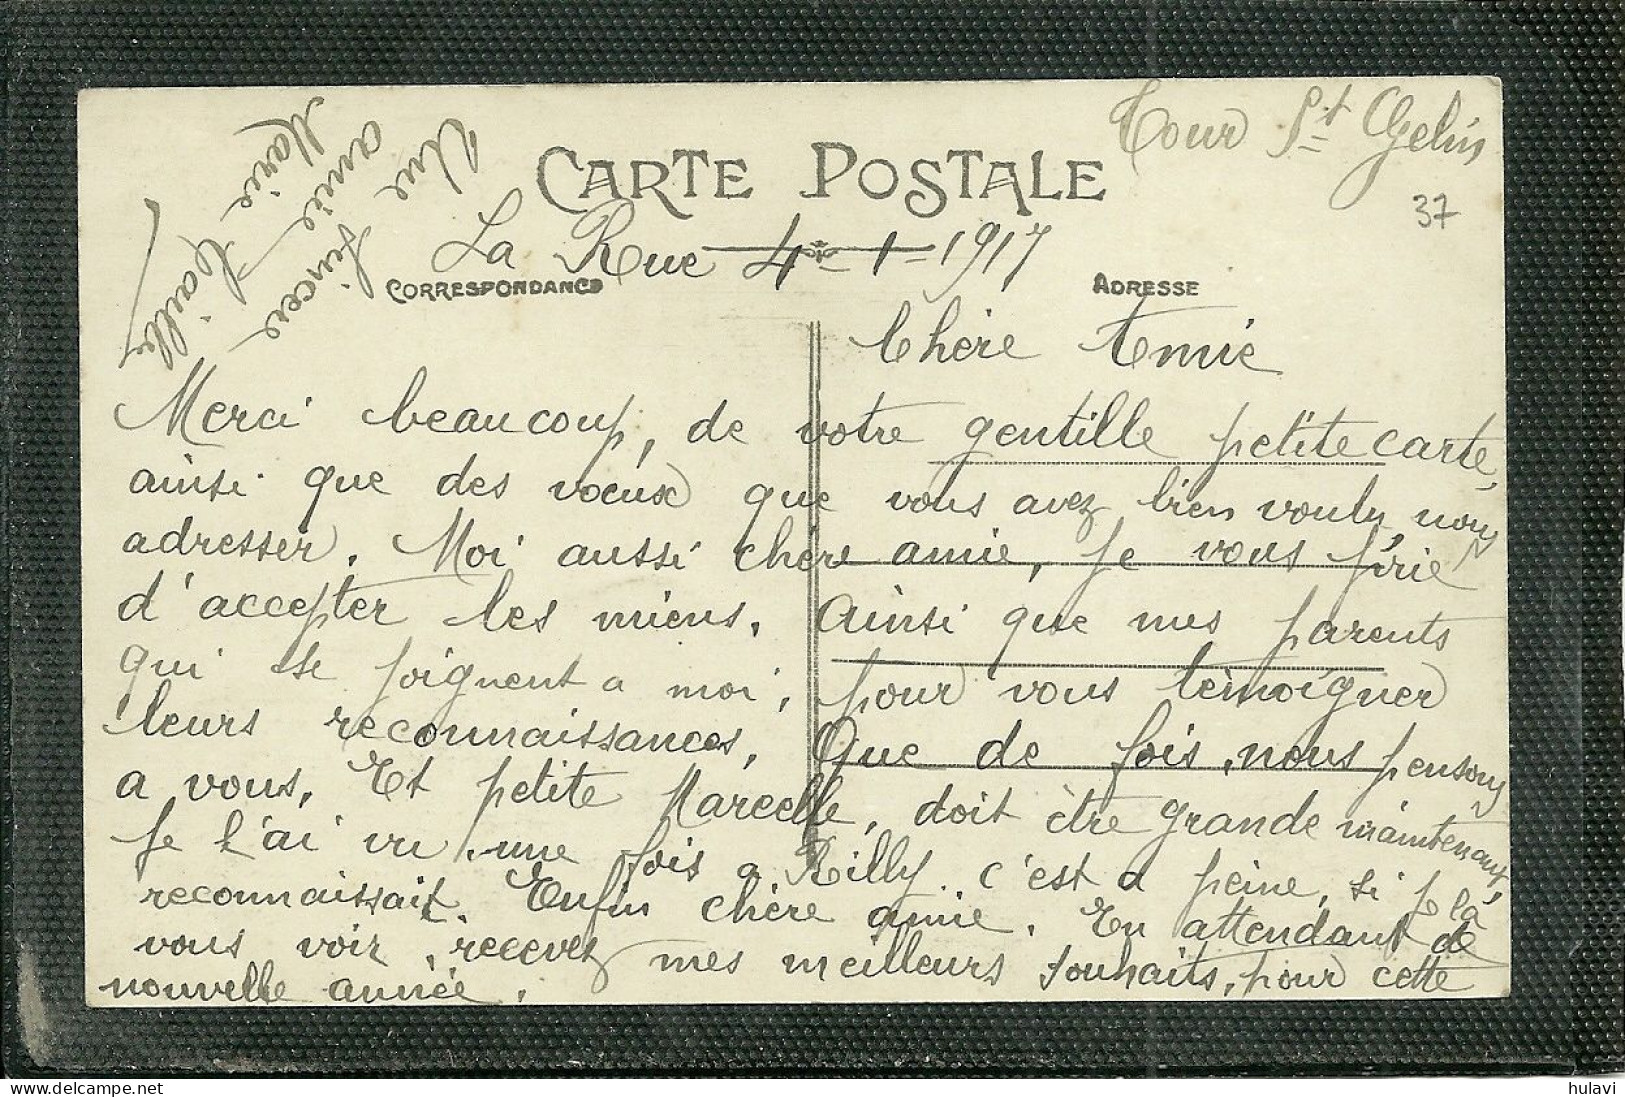 Tour St Gelin
37
CARTE POSTALE
La Rue 4-1-1917
CORRESPONDANCE
ADRESSE
Chère Amie
Merci beaucoup, de votre gentille petite carte,
ainsi que des voeux que vous avez bien voulu, nous
adresser. Moi aussi chère amie, je vous prie
d'accepter les miens. Ainsi que mes parents
qui se joignent a moi, pour vous témoigner
leurs reconnaissances. Que de fois, nous pensons
a vous. Et petite Marcelle, doit être grande maintenant,
je l'ai vu une fois a Rilly c'est a peine, si je la
reconnaissait. Enfin chère amie. En attendant de
vous voir, recevez mes meilleurs souhaits, pour cette
nouvelle année.
Une
amie sincere
Marie
hulavi